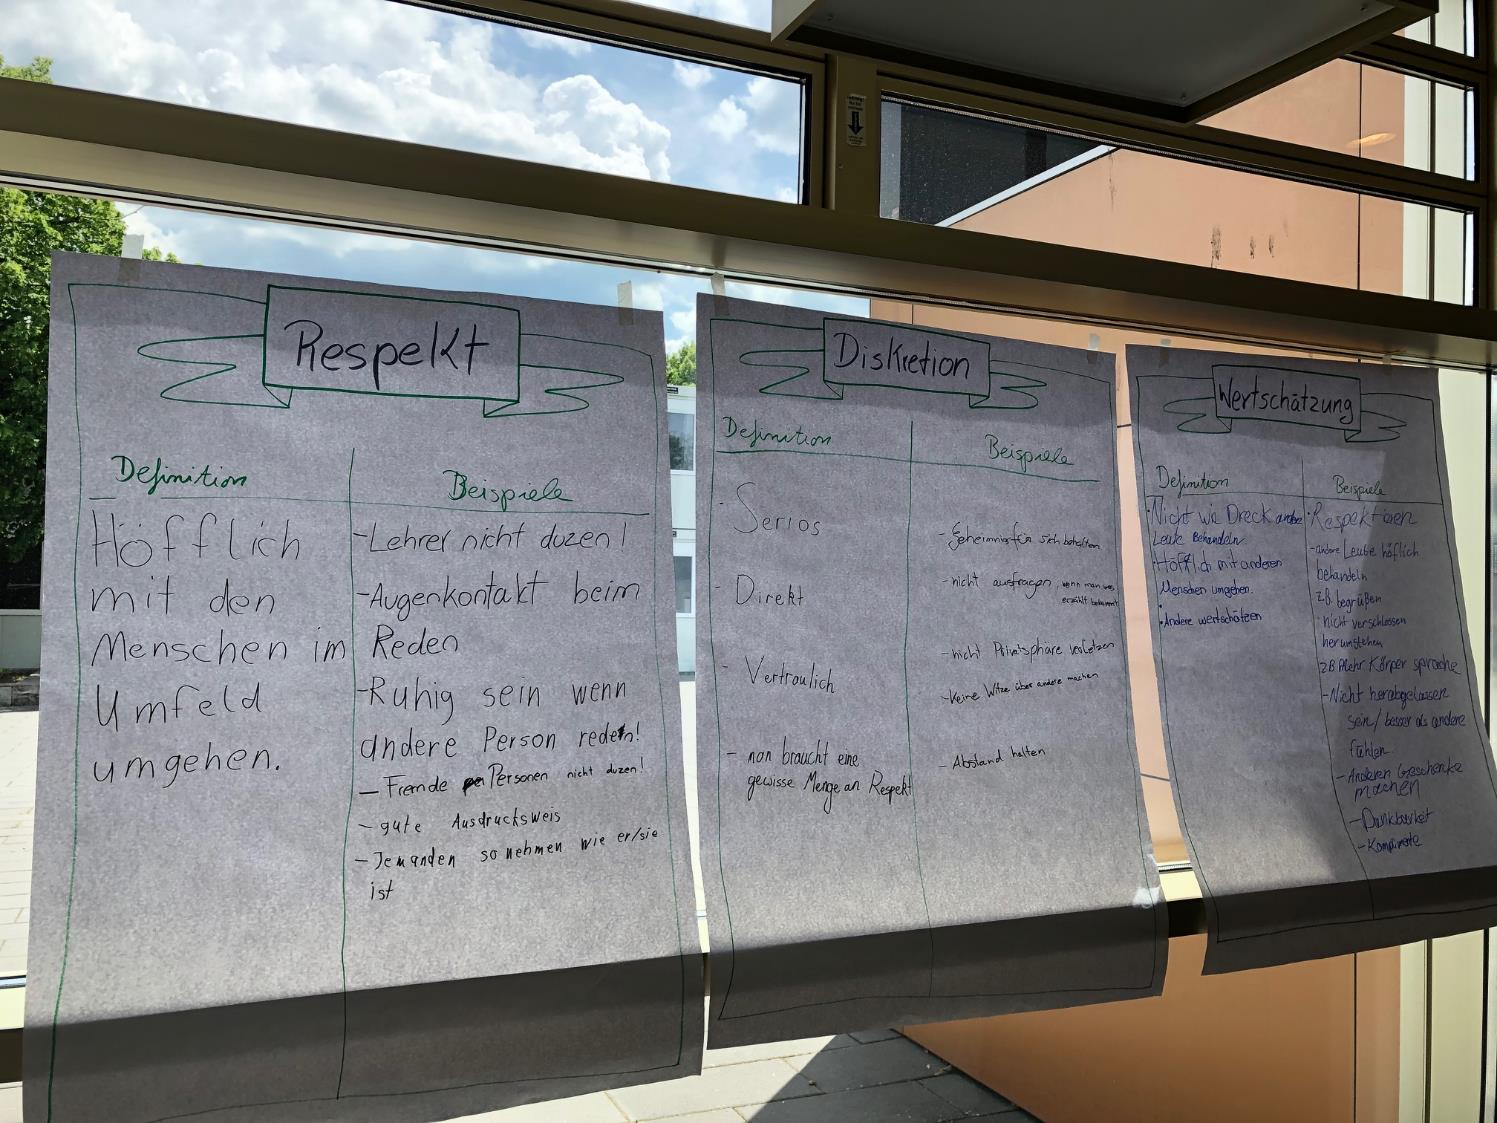 Respekt
Definition
Höfflich
mit den
Menschen im
Umfeld
umgehen.
Beispiele
-Lehrer nicht duzen!
-Augenkontakt beim
Reden
-Ruhig sein wenn
andere Person reden!
- Fremde Personen nicht duzen!
- gute Ausdrucksweis
- Jemanden so nehmen wie er/sie
ist
Diskretion
Definition
- Seriös
- Direkt
- Vertraulich
- man braucht eine
gewisse Menge an Respekt
Beispiele
- Geheimnis für sich behalten
- nicht ausfragen, wenn man was
erzählt bekommt
- nicht Privatsphäre verletzen
- Keine Witze über andere machen
- Abstand halten
Wertschätzung
Definition
· Nicht wie Dreck andre
Leute Behandeln
· Höfflich mit anderen
Menschen umgehen.
· Andere wertschätzen
Beispiele
· Respektieren
- andere Leute höflich
behandeln
z.B. begrüßen
· nicht verschlossen
herumstehen
z.B Mehr Körper sprache
- Nicht herabgelassen
sein/ besser als andere
fühlen.
- Anderen Geschenke
machen
- Dankbarkeit